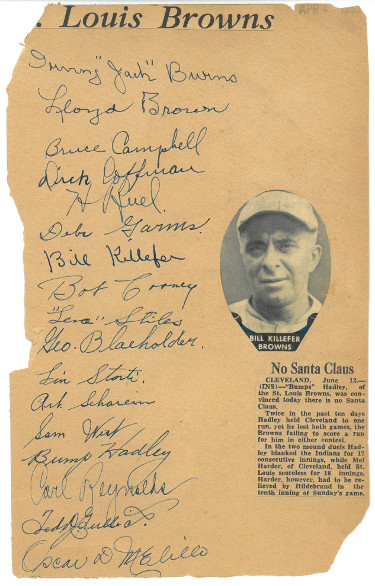 . Louis Browns
APR
Irving "Jack" Burns
Lloyd Brown
Bruce Campbell
Dick Coffman
H Ruel
Debs Garms.
Bill Killefer
Bob Cooney
"Lena" Stiles
Geo. Blaeholder.
Lin Storti.
Art Scharein
Sam West
Bump Hadley
Carl Reynolds
Ted Gullic.
Oscar D Melillo
BILL KILLEFER
BROWNS
No Santa Claus
CLEVELAND, June 13.—
(INS)—"Bumps" Hadley, of
the St. Louis Browns, was con-
vinced today there is no Santa
Claus.
Twice in the past ten days
Hadley held Cleveland to one
run, yet he lost both games, the
Browns failing to score a run
for him in either contest.
In the two mound duels Had-
ley blanked the Indians for 17
consecutive innings, while Mel
Harder, of Cleveland, held St.
Louis scoreless for 18 innings.
Harder, however, had to be re-
lieved by Hildebrand in the
tenth inning of Sunday's game.